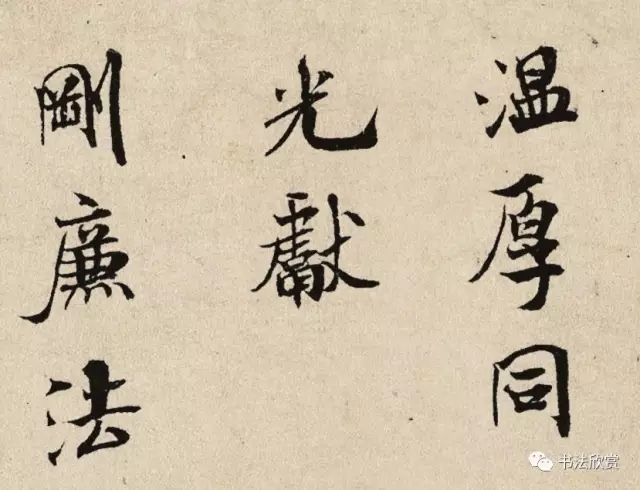 温厚同
光獻
剛廉法
书法欣赏